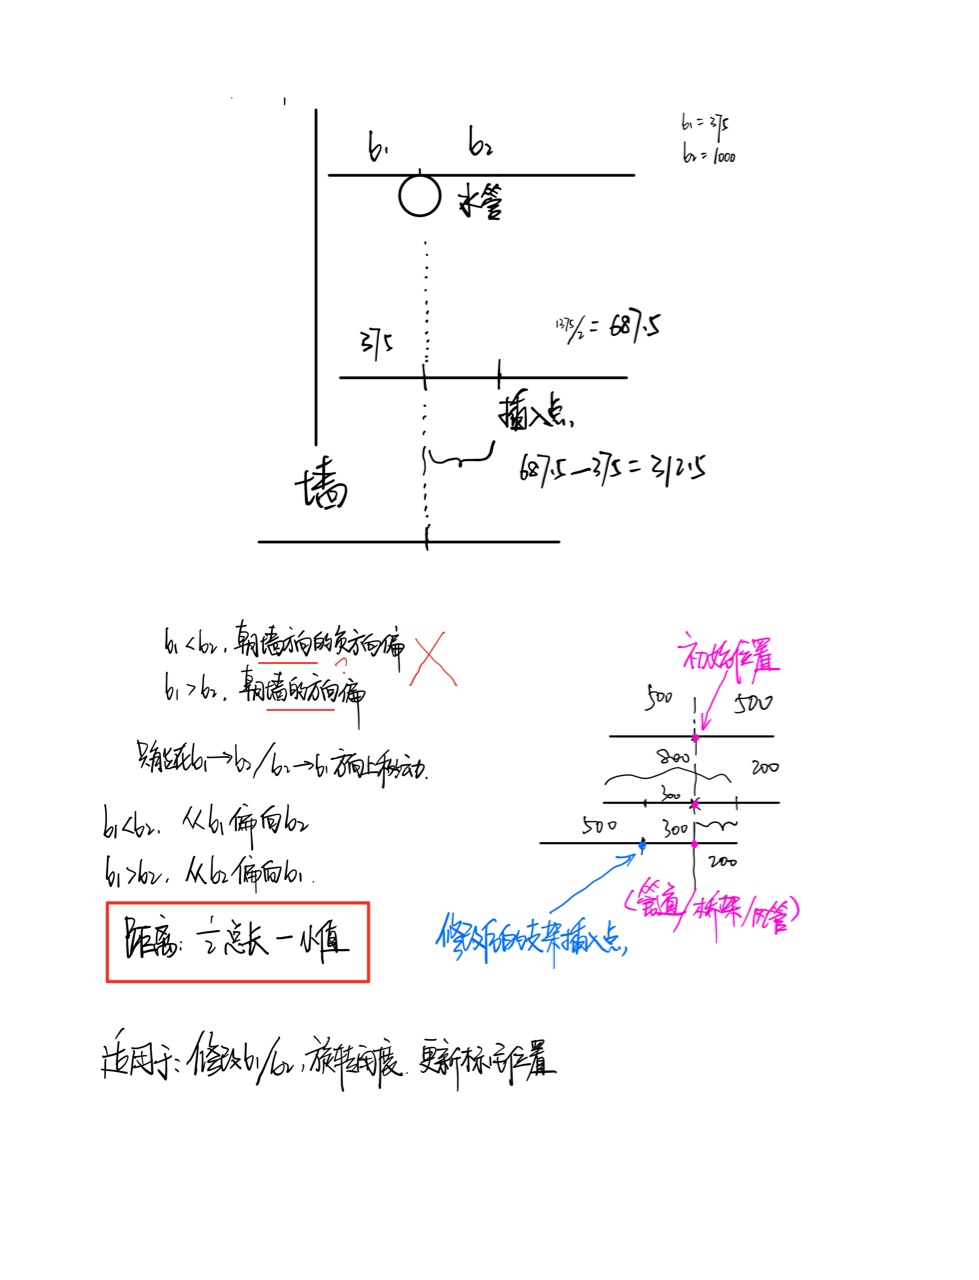 b₁ b₂
b₁=375
b₂=1000
水管
375
1375/2=687.5
插入点,
687.5-375=312.5
墙
b₁<b₂,朝墙方向的负方向偏
b₁>b₂,朝墙的方向偏
只能在b₁→b₂/b₂→b₁方向上移动.
b₁<b₂. 从b₁偏向b₂
b₁>b₂, 从b₂偏向b₁.
距离:½总长-小值
初始位置
500 500
800 200
300
500 300
200
(管道/桥架/风管)
修改后的支架插入点,
适用于:修改b₁/b₂,旋转角度.更新标高位置